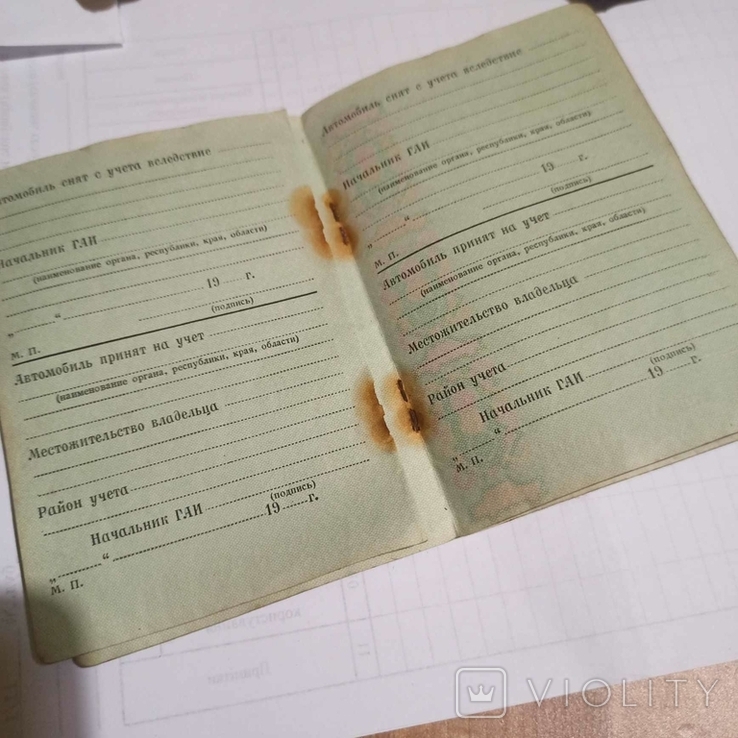 Автомобиль снят с учета вследствие
Начальник ГАИ
(наименование органа, республики, края, области)
„ “ 19 г.
(подпись)
М. П.
Автомобиль принят на учет
(наименование органа, республики, края, области)
Местожительство владельца
Район учета
Начальник ГАИ
(подпись)
„ “ 19 г.
М. П.
Автомобиль снят с учета вследствие
Начальник ГАИ
(наименование органа, республики, края, области)
„ “ 19 г.
(подпись)
М. П.
Автомобиль принят на учет
(наименование органа, республики, края, области)
Местожительство владельца
Район учета
Начальник ГАИ
(подпись)
„ “ 19 г.
М. П.
користування
17
VIOLITY